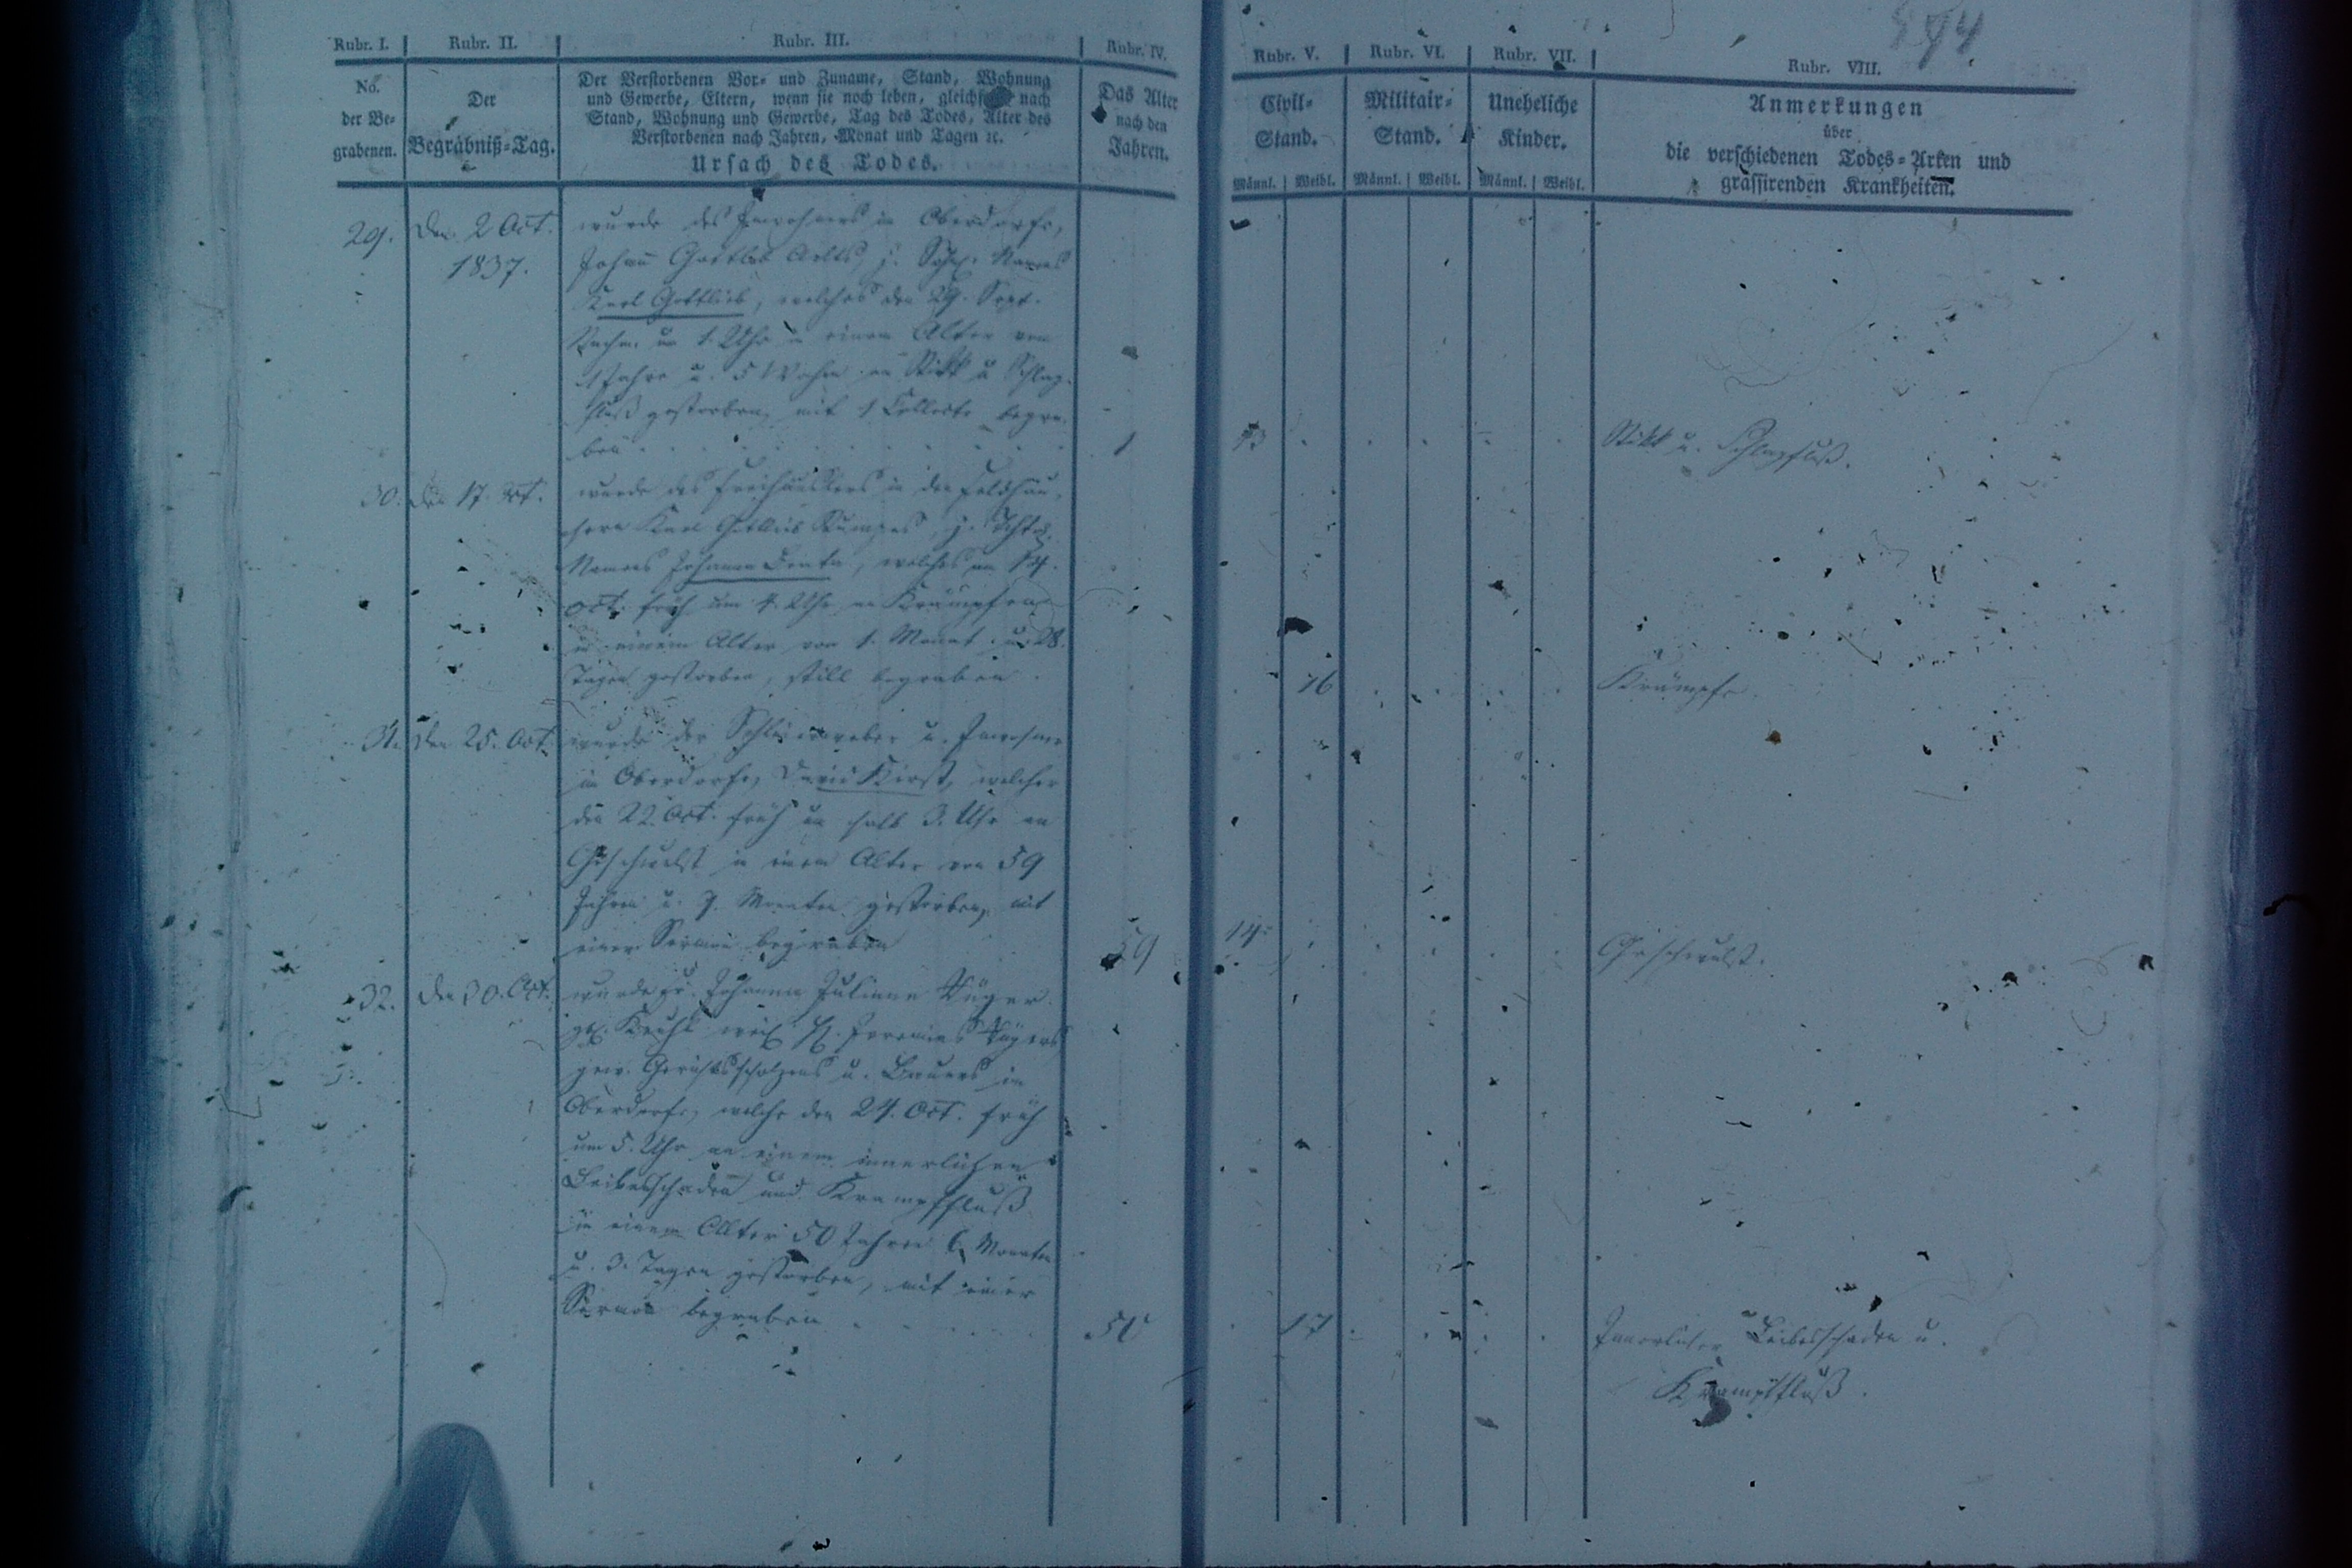 Rubr. I. Rubr. II. Rubr. III. Rubr. IV. Rubr. V. Rubr. VI. Rubr. VII. Rubr. VIII.
No. der Be-grabenen.
Der Begräbniß-Tag.
Der Verstorbenen Vor- und Zuname, Stand, Wohnung
und Gewerbe, Eltern, wenn sie noch leben, gleichfalls nach
Stand, Wohnung und Gewerbe, Tag des Todes, Alter des
Verstorbenen nach Jahren, Monat und Tagen ꝛc.
Ursach des Todes.
Das Alter
nach den
Jahren.
Civil-
Stand.
Militair-
Stand.
Uneheliche
Kinder.
Anmerkungen
über
die verschiedenen Todes-Arten und
grassirenden Krankheiten.
Männl. Weibl. Männl. Weibl. Männl. Weibl.
29. Den 2 Oct. 1837.
wurde des Inwohners in Oberdorfe,
Johann Gottlob Söhnl. Namens
Karl Gottlieb, welches den 29. Sept.
Nachm. um 1. Uhr in einem Alter von
1 Jahre u. 5 Wochen an Stick u Schlag-
fluß gestorben, mit 1 Collecte begra-
ben 1 13 Stick u. Schlagfluß.
30. Den 17. Oct.
wurde des Freihäuslers in den Feldhäu-
sern Karl Gottlieb
Namens Johanne welches am 14.
Oct. früh um 4. Uhr an Krämpfen
in einem Alter von 1. Monat u. 28.
Tagen gestorben, still begraben. 16 Krämpfe.
31. Den 25. Oct.
wurde der u. Inwohner
in Oberdorfe, David Hirst, welcher
den 22. Oct. früh um halb 3. Uhr an
Geschwulst in einem Alter von 59
Jahren u. 9. Monaten gestorben, mit
einer Sermon begraben 59 14 Geschwulst.
32. Den 30. Oct.
wurde Fr. Johanne Juliane
gew. Gerichtsscholzens u. Bauers in
Oberdorfe, welche den 24. Oct. früh
um 5. Uhr an einem innerlichen
Leibesschaden und Krampffluß
in einem Alter 50 Jahren 6 Monaten
u. 3. Tagen gestorben, mit einer
Sermon begraben 50 17 Innerlicher Leibesschaden u.
Krampffluß.